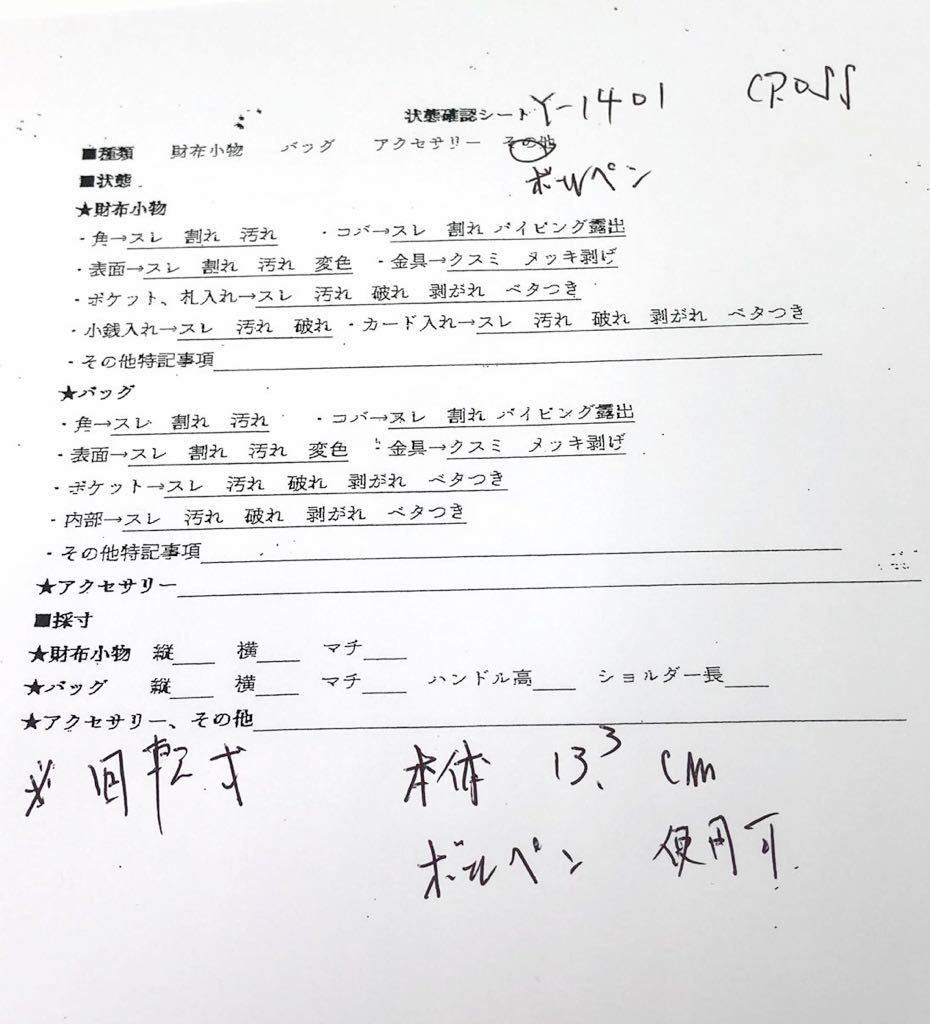 状態確認シート Y-1401 CROSS
■種類 財布小物 バッグ アクセサリー その他
■状態 ボールペン
★財布小物
・角→スレ 割れ 汚れ ・コバ→スレ 割れ パイピング露出
・表面→スレ 割れ 汚れ 変色 ・金具→クスミ メッキ剥げ
・ポケット、札入れ→スレ 汚れ 破れ 剥がれ ベタつき
・小銭入れ→スレ 汚れ 破れ ・カード入れ→スレ 汚れ 破れ 剥がれ ベタつき
・その他特記事項
★バッグ
・角→スレ 割れ 汚れ ・コバ→スレ 割れ パイピング露出
・表面→スレ 割れ 汚れ 変色 ・金具→クスミ メッキ剥げ
・ポケット→スレ 汚れ 破れ 剥がれ ベタつき
・内部→スレ 汚れ 破れ 剥がれ ベタつき
・その他特記事項
★アクセサリー
■採寸
★財布小物 縦 横 マチ
★バッグ 縦 横 マチ ハンドル高 ショルダー長
★アクセサリー、その他
※回転式 本体 13.3 cm
ボールペン 使用可.